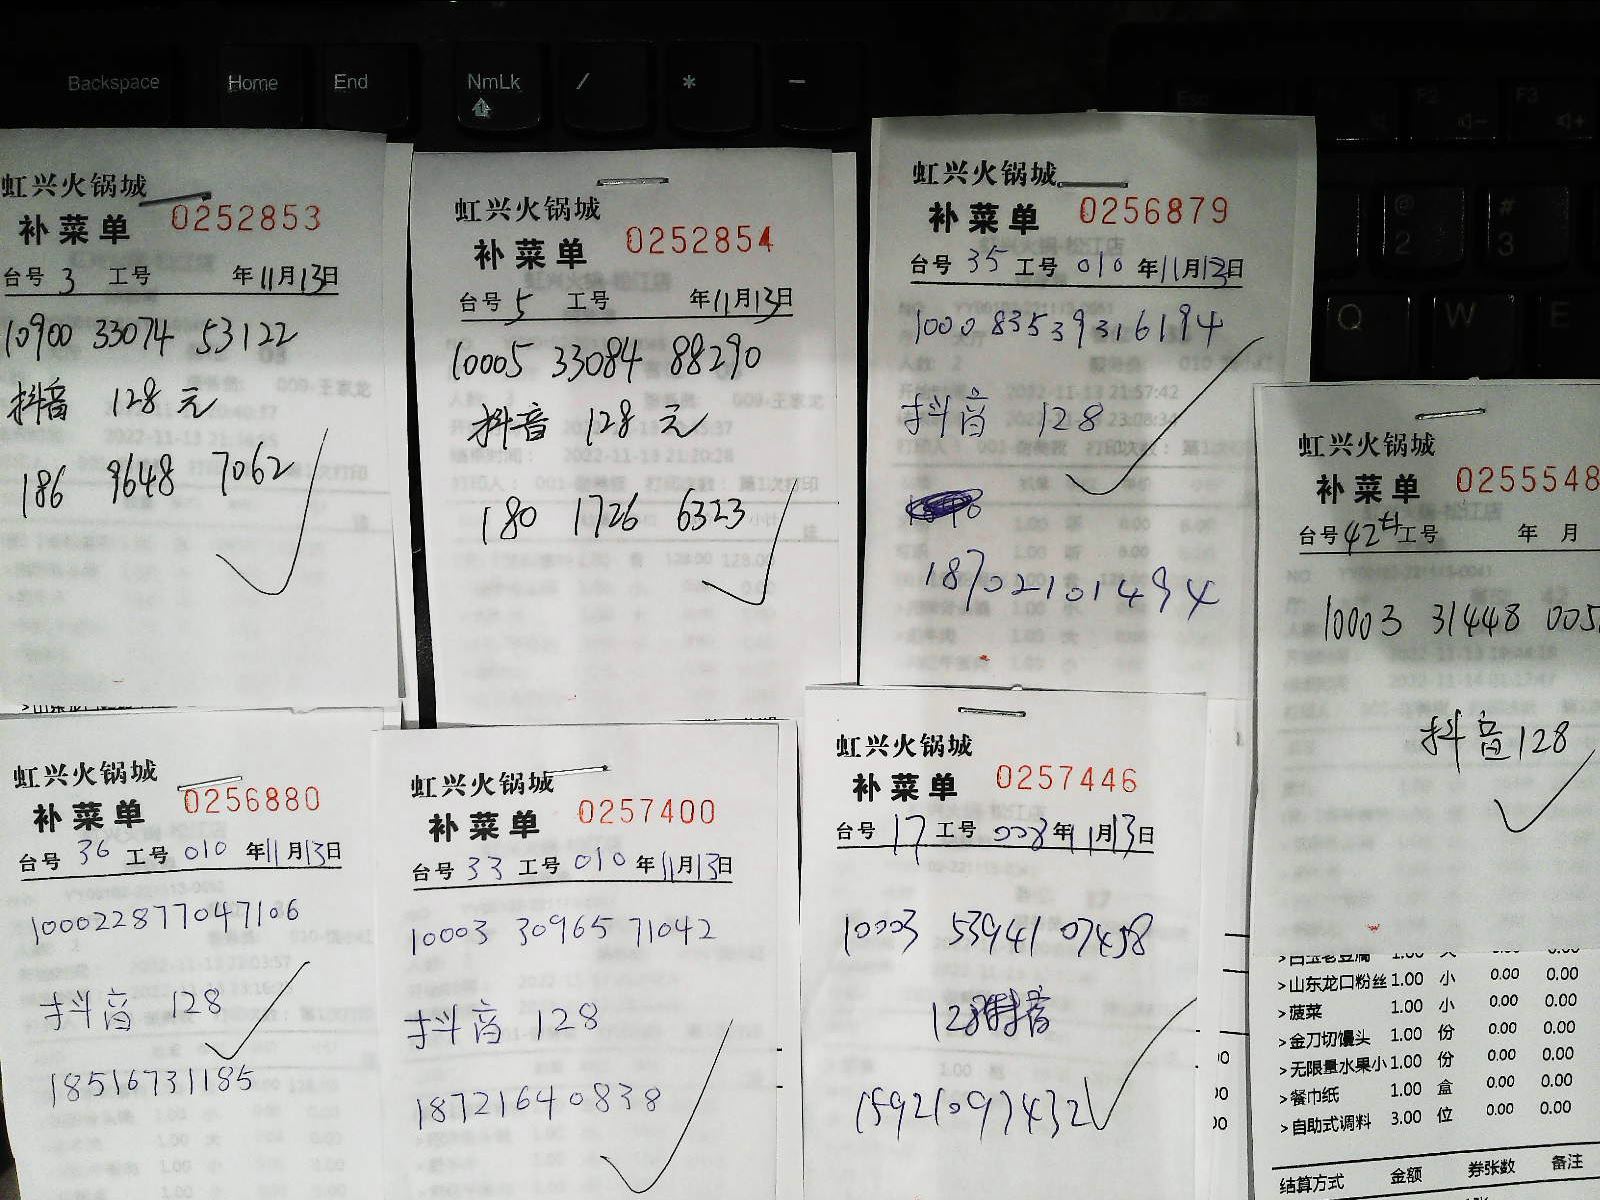 Backspace
Home
End
NmLk
/
*
-
Esc
F2
F3
@
2
#
3
Q
W
E
虹兴火锅城
补菜单 0252853
台号 3 工号 年11月13日
10900 33074 53122
抖音 128元
186 9648 7062
虹兴火锅城
补菜单 0252854
台号 5 工号 年11月13日
10005 33084 88290
抖音 128元
180 1726 6323
虹兴火锅城
补菜单 0256879
台号 35 工号 010 年11月13日
1000 83539316194
抖音 128
18702101494
虹兴火锅城
补菜单 0255548
台号 42 工号 年 月
10003 31448 005
抖音128
虹兴火锅城
补菜单 0256880
台号 36 工号 010 年11月13日
100022877047106
抖音 128
18516731185
虹兴火锅城
补菜单 0257400
台号 33 工号 010 年11月13日
10003 30965 71042
抖音 128
18721640838
虹兴火锅城
补菜单 0257446
台号 17 工号 008 年11月13日
10003 53941 07458
128抖音
15921097432
>白玉老豆腐 1.00 大 0.00 0.00
>山东龙口粉丝 1.00 小 0.00 0.00
>菠菜 1.00 小 0.00 0.00
>金刀切馒头 1.00 份 0.00 0.00
>无限量水果小 1.00 份 0.00 0.00
>餐巾纸 1.00 盒 0.00 0.00
>自助式调料 3.00 位 0.00 0.00
结算方式 金额 券张数 备注